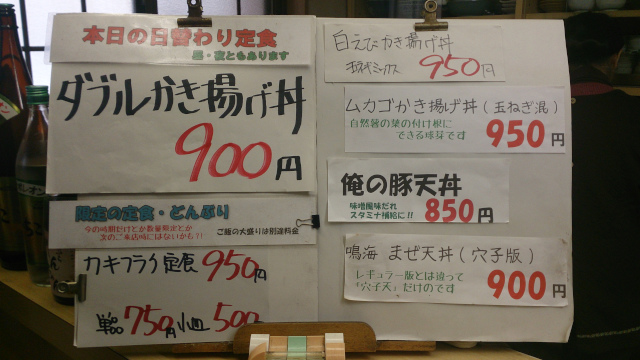 本日の日替わり定食
昼・夜ともあります
ダブルかき揚げ丼
900円
限定の定食・どんぶり
今の時期だけとか数量限定とか
次のご来店時にはないかも?!
ご飯の大盛りは別途料金
カキフライ定食 950円
単品 750円 小皿 500
白えびかき揚げ丼
玉ねぎミックス 950円
ムカゴかき揚げ丼(玉ねぎ混)
自然薯の葉の付け根に
できる球芽です
950円
俺の豚天丼
味噌風味だれ
スタミナ補給に!!
850円
鳴海 まぜ天丼(穴子版)
レギュラー版とは違って
「穴子天」だけのです
900円